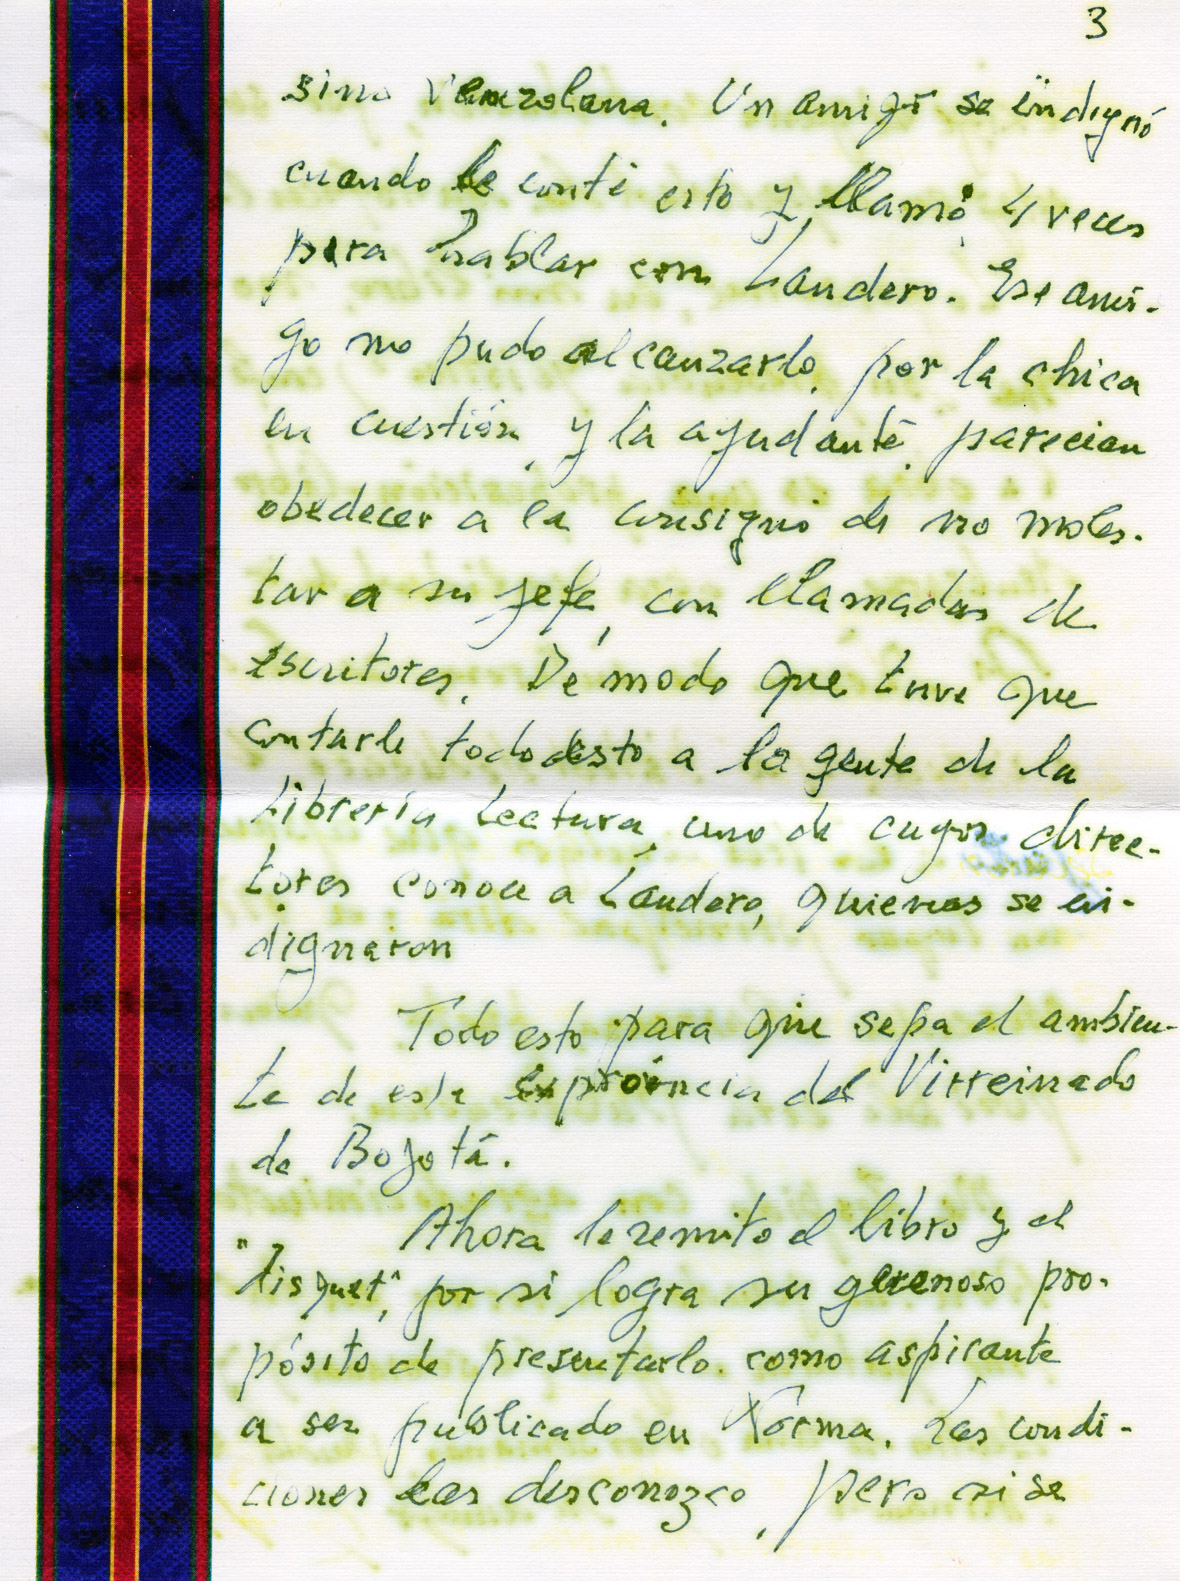 3
sino venezolana. Un amigo se indignó
cuando le conté esto y, llamó, 4 veces
para hablar con Landero. Ese ami-
go no pudo alcanzarlo, por la chica
en cuestión, y la ayudante, parecian
obedecer a la consigna de no moles-
tar a su jefe, con llamadas de
escritores. De modo que tuve que
contarle todo esto a la gente de la
Librería Lectura, uno de cuyos direc-
tores conoce a Landero, quienes se in-
dignaron
Todo esto para que sepa el ambien-
te de esta exprovincia del Virreinado
de Bogotá.
Ahora le remito el libro y el
"disquet", por si logra su generoso pro-
pósito de presentarlo como aspirante
a ser publicado en Norma. Las condi-
ciones las desconozco, pero si se